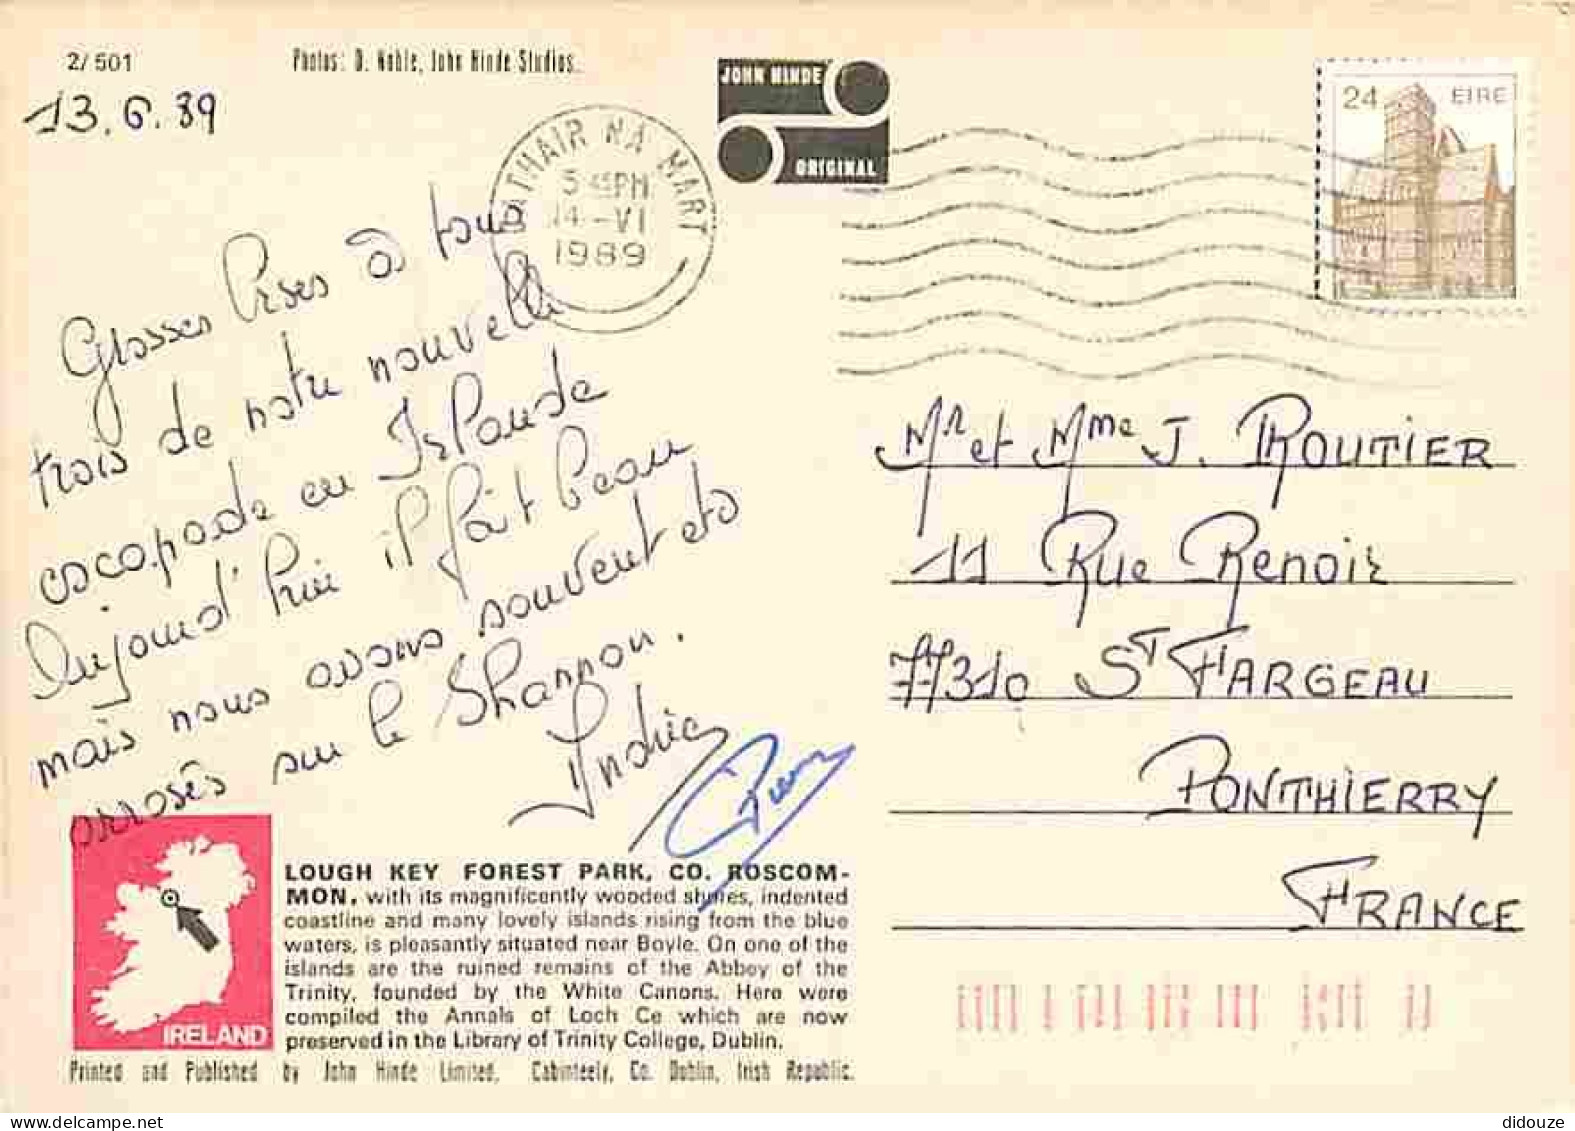 2/ 501
Photos: D. Noble, John Hinde Studios.
13.6.89
JOHN HINDE
ORIGINAL
CATHAIR NA MART
5 45PM
14-VI
1989
24 ÉIRE
Grosses Bises à tous
trois de notre nouvelle
escapade en Islande
Aujourd'hui il fait beau
mais nous avons souvent étés
arrosés sur le Shannon.
Pierre
Mr et Mme J. ROUTIER
11 Rue Renoir
77310 ST FARGEAU
PONTHIERRY
FRANCE
IRELAND
LOUGH KEY FOREST PARK, CO. ROSCOM-
MON, with its magnificently wooded shores, indented
coastline and many lovely islands rising from the blue
waters, is pleasantly situated near Boyle. On one of the
islands are the ruined remains of the Abbey of the
Trinity, founded by the White Canons. Here were
compiled the Annals of Loch Ce which are now
preserved in the Library of Trinity College, Dublin.
Printed and Published by John Hinde Limited, Cabinteely, Co. Dublin, Irish Republic.
didouze